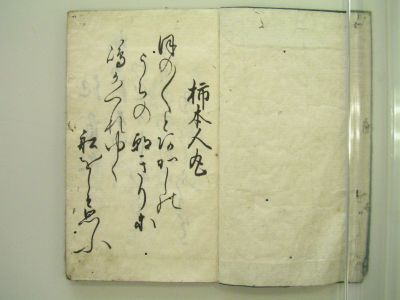 柿本人丸
ほの〱とあかしの
うらの朝きりに
嶋かくれゆく
舩をしそ思ふ